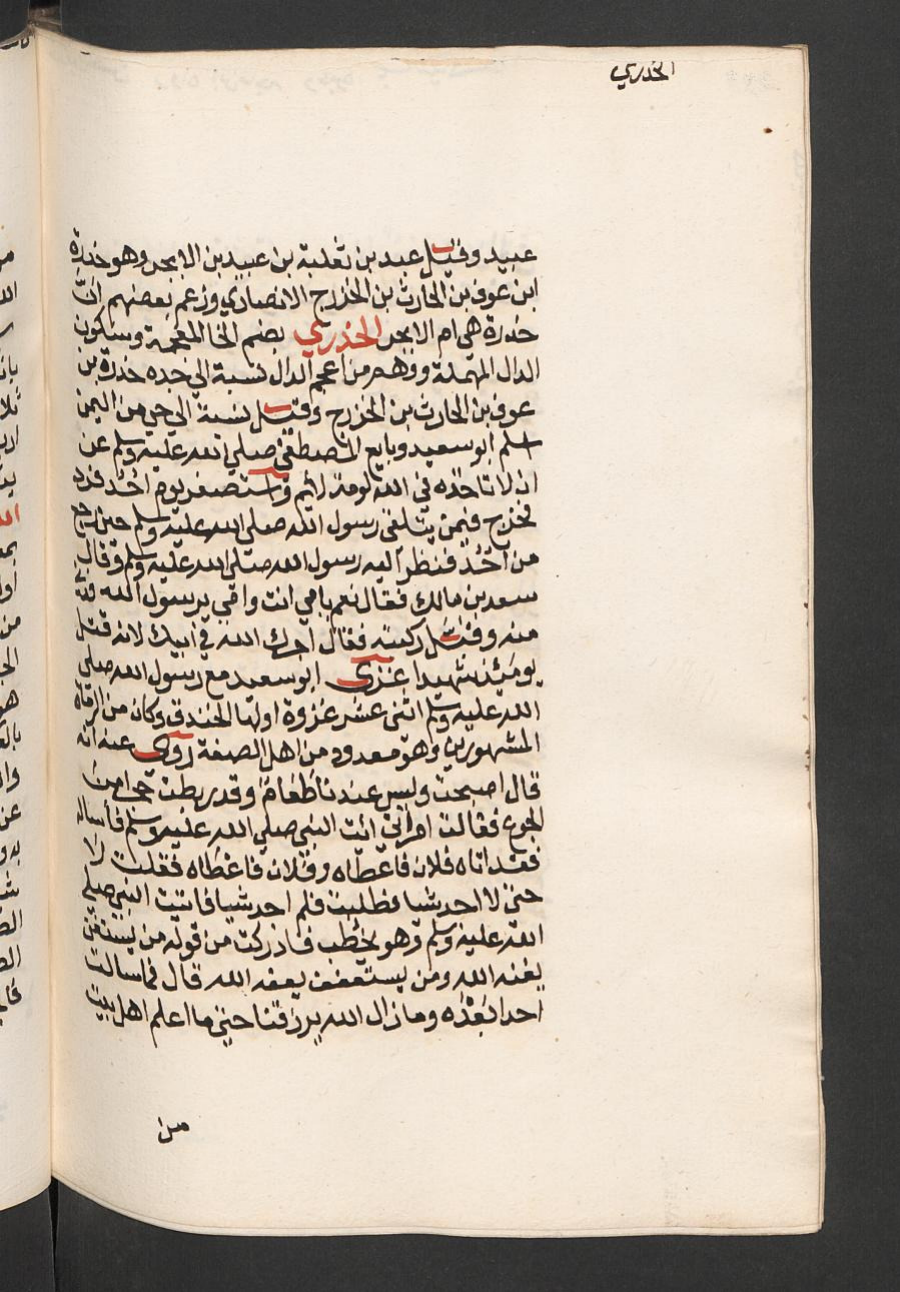 الخدري
عبيد وقيل عبد بن ثعلبة بن عبيد بن الابجر وهو خدرة
ابن عوف بن الحارث بن الخزرج الانصاري وزعم بعضهم ان
خدرة هي ام الابجر الخدري بضم الخا المعجمة وسكون
الدال المهملة ووهم من اعجم الدال نسبة الي جده خدرة بن
عوف بن الحارث بن الخزرج وقيل نسبة الي حي من اليمن
اسلم ابو سعيد وبايع المصطفي صلي الله عليه وسلم عن
ان لا تاخذه في الله لومة لائم واستصغر يوم احد فرد
فخرج فيمن يتلقي رسول الله صلي الله عليه وسلم حين رجع
من أحد فنظر اليه رسول الله صلي الله عليه وسلم وقال
سعد بن مالك فقال نعم بابي انت وامي يرسول الله
منه وقبل ركبته فقال اجرك الله في ابيك لانه قتل
يومئذ شهيدا غزي ابو سعيد مع رسول الله صلي
الله عليه وسلم اثني عشر غزوة اولها الخندق وكان من الرماة
المشهورين وهو معدود من اهل الصفة روي عنه انه
قال اصبحت وليس عندنا طعام وقد ربطت حجرا من
الجوع فقالت امراتي ائت النبي صلي الله عليه وسلم فأساله
فقد اتاه فلان فاعطاه وفلان فاعطاه فقلت لا
حتي لا اجد شيا فطلبت فلم اجد شيا فاتيت النبي صلي
الله عليه وسلم وهو يخطب فادركت من قوله من يستغن
يغنه الله ومن يستعفف يعفه الله قال فما سالت
احدا بعده وما زال الله يرزقنا حتي ما اعلم اهل بيت
من